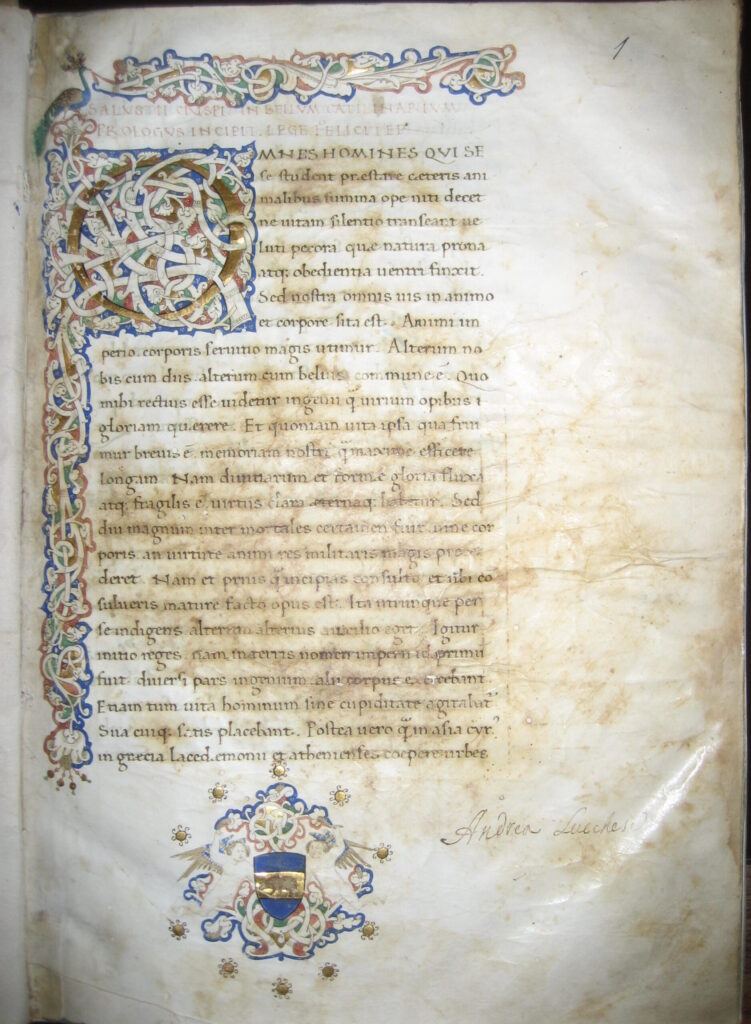 1
SALVSTII CRISPI IN BELLVM CATILINARIVM
PROLOGVS INCIPIT. LEGE FELICITER
OMNES HOMINES QVI SE
se student præstare cæteris ani
malibus summa ope niti decet
ne uitam silentio transeant ue
luti pecora quæ natura prona
atq; obedientia uentri finxit.
Sed nostra omnis uis in animo
et corpore sita est. Animi im
perio corporis seruitio magis utimur. Alterum no
bis cum diis alterum cum beluis commune ē. Quo
mihi rectius esse uidetur ingenii q̃ uirium opibus
gloriam quærere. Et quoniam uita ipsa qua frui
mur breuis ē memoriam nostri q̃ maxime efficere
longam. Nam diuitiarum et formæ gloria fluxa
atq; fragilis ē uirtus clara æternaq; habetur. Sed
diu magnum inter mortales certamen fuit uine cor
poris an uirtute animi res militaris magis proce
deret. Nam et prius q̃ incipias consulto et ubi co
sulueris mature facto opus est. Ita utrunque per
se indigens alterum alterius auxilio eget. Igitur
initio reges nam in terris nomen imperii id primū
fuit diuersi pars ingenium alii corpus exercebant
Etiam tum uita hominum sine cupiditate agitabat̃
Sua cuiq; satis placebant. Postea uero q̃ in asia cyr
in græcia lacedæmonii et athenienses coepere urbes
Andrea Lucchesi